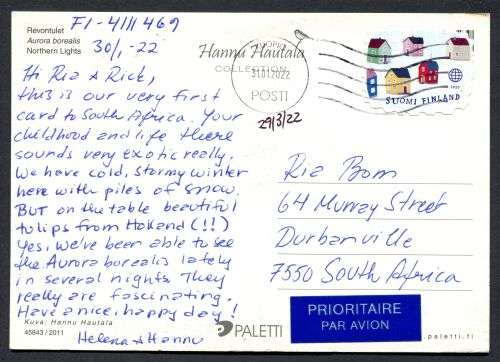 Revontulet
Aurora borealis
Northern Lights
FI-4111469
30/1-22
Hi Ria & Rick,
this is our very first
card to South Africa. Your
childhood and life there
sounds very exotic really.
We have cold, stormy winter
here with piles of snow.
BUT on the table beautiful
tulips from Holland (!!)
Yes, we've been able to see
the Aurora borealis lately
in several nights. They
really are fascinating.
Have a nice, happy day!
Helena & Hannu
Kuva: Hannu Hautala
45843 / 2011
Hannu Hautala
COLLECTION
31.01.2022
POSTI
29/3/22
SUOMI FINLAND
Ria Bom
64 Murray Street
Durbanville
7550 South Africa
PRIORITAIRE
PAR AVION
PALETTI
paletti.fi